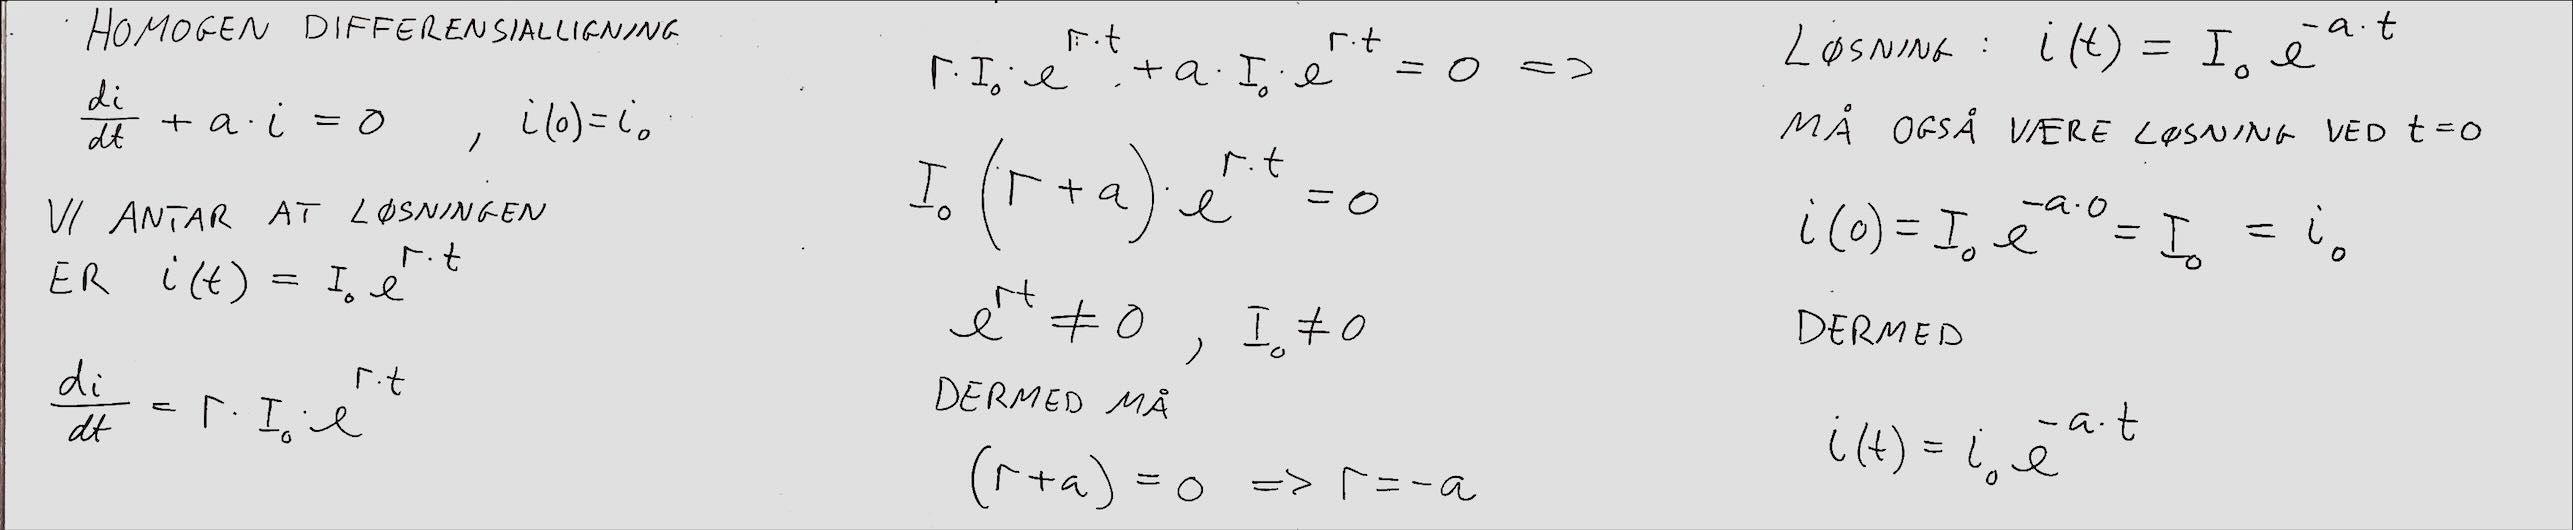 HOMOGEN DIFFERENSIALLIGNING
di/dt + a · i = 0 , i(0) = i₀
VI ANTAR AT LØSNINGEN
ER i(t) = I₀ e^(r·t)
di/dt = r · I₀ · e^(r·t)
r · I₀ · e^(r·t) + a · I₀ · e^(r·t) = 0 =>
I₀ (r + a) · e^(r·t) = 0
e^(rt) ≠ 0 , I₀ ≠ 0
DERMED MÅ
(r + a) = 0 => r = -a
LØSNING : i(t) = I₀ e^(-a·t)
MÅ OGSÅ VÆRE LØSNING VED t = 0
i(0) = I₀ e^(-a·0) = I₀ = i₀
DERMED
i(t) = i₀ e^(-a·t)